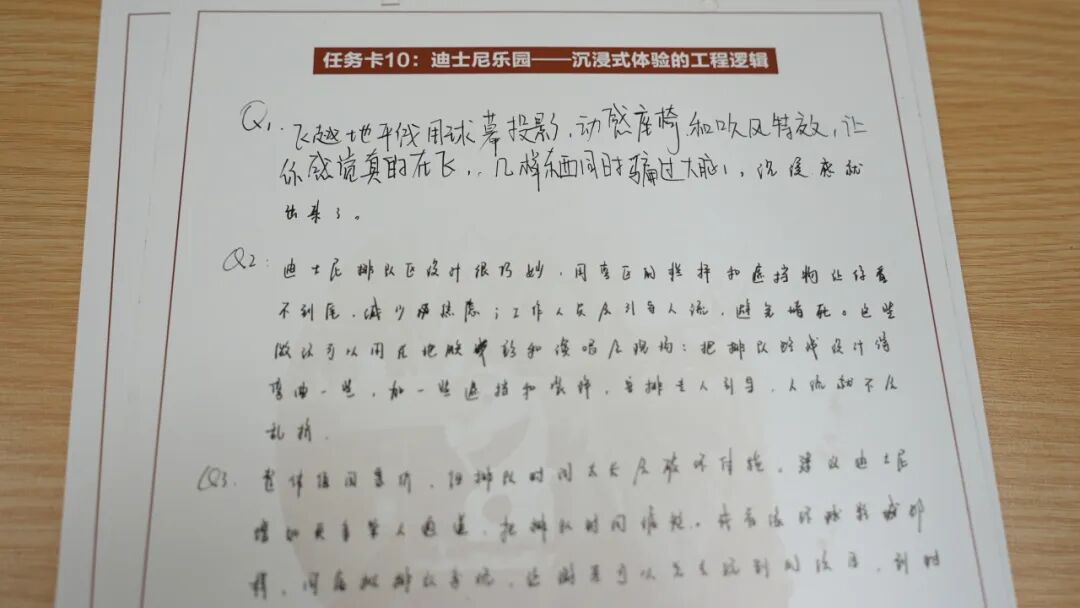 任务卡10：迪士尼乐园——沉浸式体验的工程逻辑
Q1. 飞越地平线用球幕投影、动感座椅和吹风特效，让
你感觉真的在飞，几样东西同时骗过大脑，沉浸感就
出来了。
Q2：迪士尼排队区设计很巧妙，用弯曲的栏杆和遮挡物让你看
不到尾，减少焦虑；工作人员及引导人流，避免堵死。这些
做法可以用在地铁和演唱会现场：把排队路线设计得
弯曲一些，加一些遮挡和装饰，安排专人引导，人流就不会
乱挤。
Q3. 整体值回票价，但排队时间太长会破坏体验。建议迪士尼
增加更多单人通道，把排队时间缩短。
排队系统，还可以